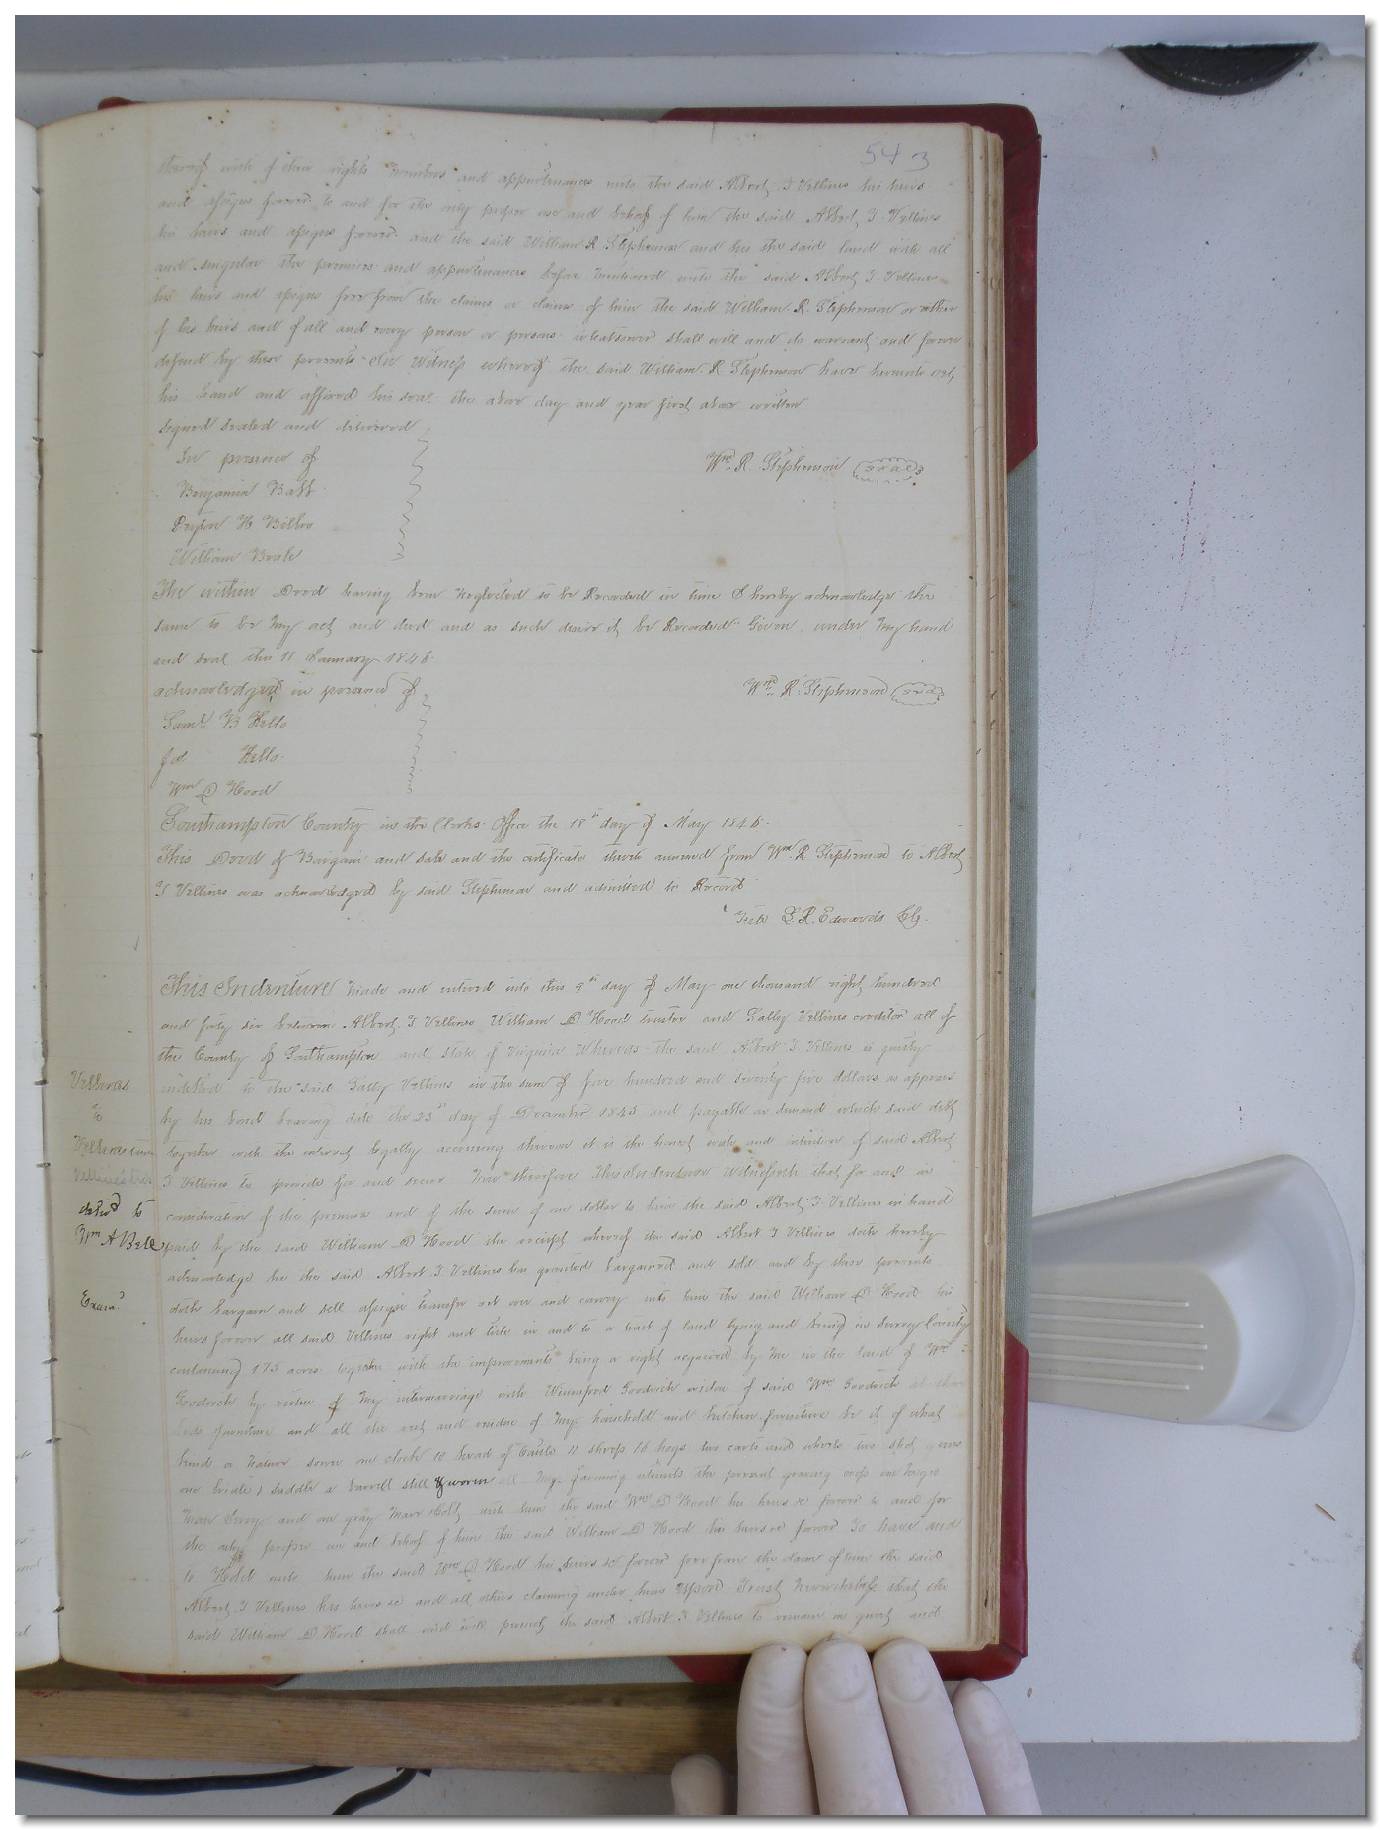 543
thereof with of their rights members and appurtenances unto the said Albert T Vellines his heirs
and assigns forever to and for the only proper use and behoof of him the said Albert T Vellines
his heirs and assigns forever and the said William R Stephenson and his the said land with all
and singular the premises and appurtenances before mentioned unto the said Albert T Vellines
his heirs and assigns free from the claims or claims of him the said William R. Stephenson or either
of his heirs and of all and every person or persons whatsoever shall will and do warrant and forever
defend by these presents In Witness whereof the said William R Stephenson have hereunto set
his hand and affixed his seal the above day and year first above written
signed sealed and delivered
In presence of
Wm. R. Stephenson seal
Benjamin Batt
William
The within Deed having been neglected to be Recorded in time I hereby acknowledge the
same to be my act and deed and as such desire it be Recorded Given under my hand
and seal this 11 January 1846
acknowledged in presence of
Wm. R. Stephenson seal
Saml B Kello
Kello
Wm D Hood
Southampton County in the Clerks Office the 18th day of May 1846
This Deed of Bargain and sale and the certificate thereto annexed from Wm. R Stephenson to Albert
T Vellines was acknowledged by said Stephenson and admitted to Record
Teste L. R. Edwards Clk.
This Indenture made and entered into this 9th day of May one thousand eight hundred
and forty six between Albert T Vellines William D Hood trustee and Sally Vellines creditor all of
the County of Southampton and state of Virginia Whereas the said Albert T Vellines is justly
Vellines
indebted to the said Sally Vellines in the sum of five hundred and seventy five dollars as appears
to
by his bond bearing date the 25th day of December 1845 and payable on demand which said debt
together with the interest legally accruing thereon it is the honest wish and intention of said Albert
T Vellines to provide for and secure Now therefore This Indenture Witnesseth that for and in
deld to
consideration of the premises and of the sum of one dollar to him the said Albert T Vellines in hand
Wm A Bell
paid by the said William D Hood the receipt whereof the said Albert T Vellines doth hereby
acknowledge he the said Albert T Vellines has granted bargained and sold and by these presents
Exam.
doth bargain and sell assign transfer set over and convey unto him the said William D Hood his
heirs forever all said Vellines right and title in and to a tract of land lying and being in Surry County
containing 175 acres together with the improvements being a right acquired by me in the land of Wm
Goodrich by virtue of my intermarriage with Winnefred Goodrich widow of said Wm Goodrich
furniture and all the rest and residue of my household and kitchen furniture be it of what
kind or nature soever one clock 10 head of Cattle 11 sheep 16 hogs two carts and wheels two shot guns
one bridle & saddle a barrell still & worm all my farming utensils the present growing crops one
mare and one gray mare Colt unto him the said Wm D Hood his heirs &c forever to and for
the only proper use and behoof of him the said William D Hood his heirs &c forever To have and
to Hold unto him the said Wm D Hood his heirs &c forever free from the claim of him the said
Albert T Vellines his heirs &c and all others claiming under him Upon Trust Nevertheless that the
said William D Hood shall and will permit the said Albert T Vellines to remain in quiet and